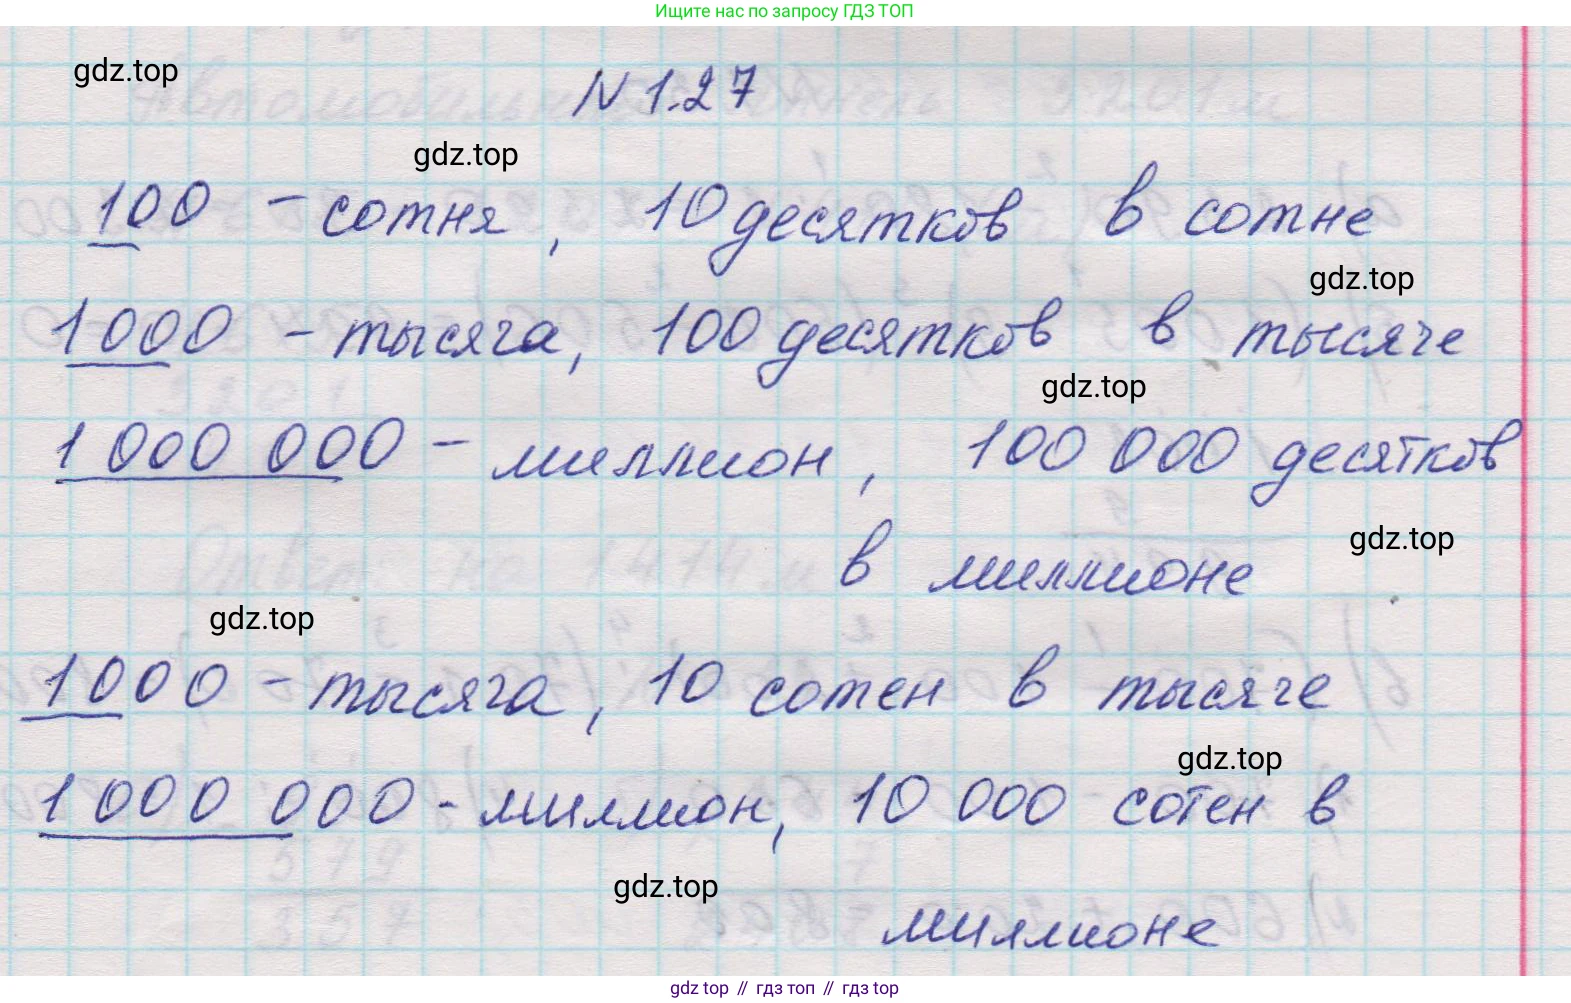 Ищите нас по запросу ГДЗ ТОП
gdz.top
N 1.27
gdz.top
100 – сотня, 10 десятков в сотне
gdz.top
1000 – тысяча, 100 десятков в тысяче
gdz.top
1 000 000 – миллион, 100 000 десятков
gdz.top
в миллионе
gdz.top
1000 – тысяча, 10 сотен в тысяче
gdz.top
1 000 000 - миллион, 10 000 сотен в
gdz.top
миллионе
gdz top // гдз топ // гдз top